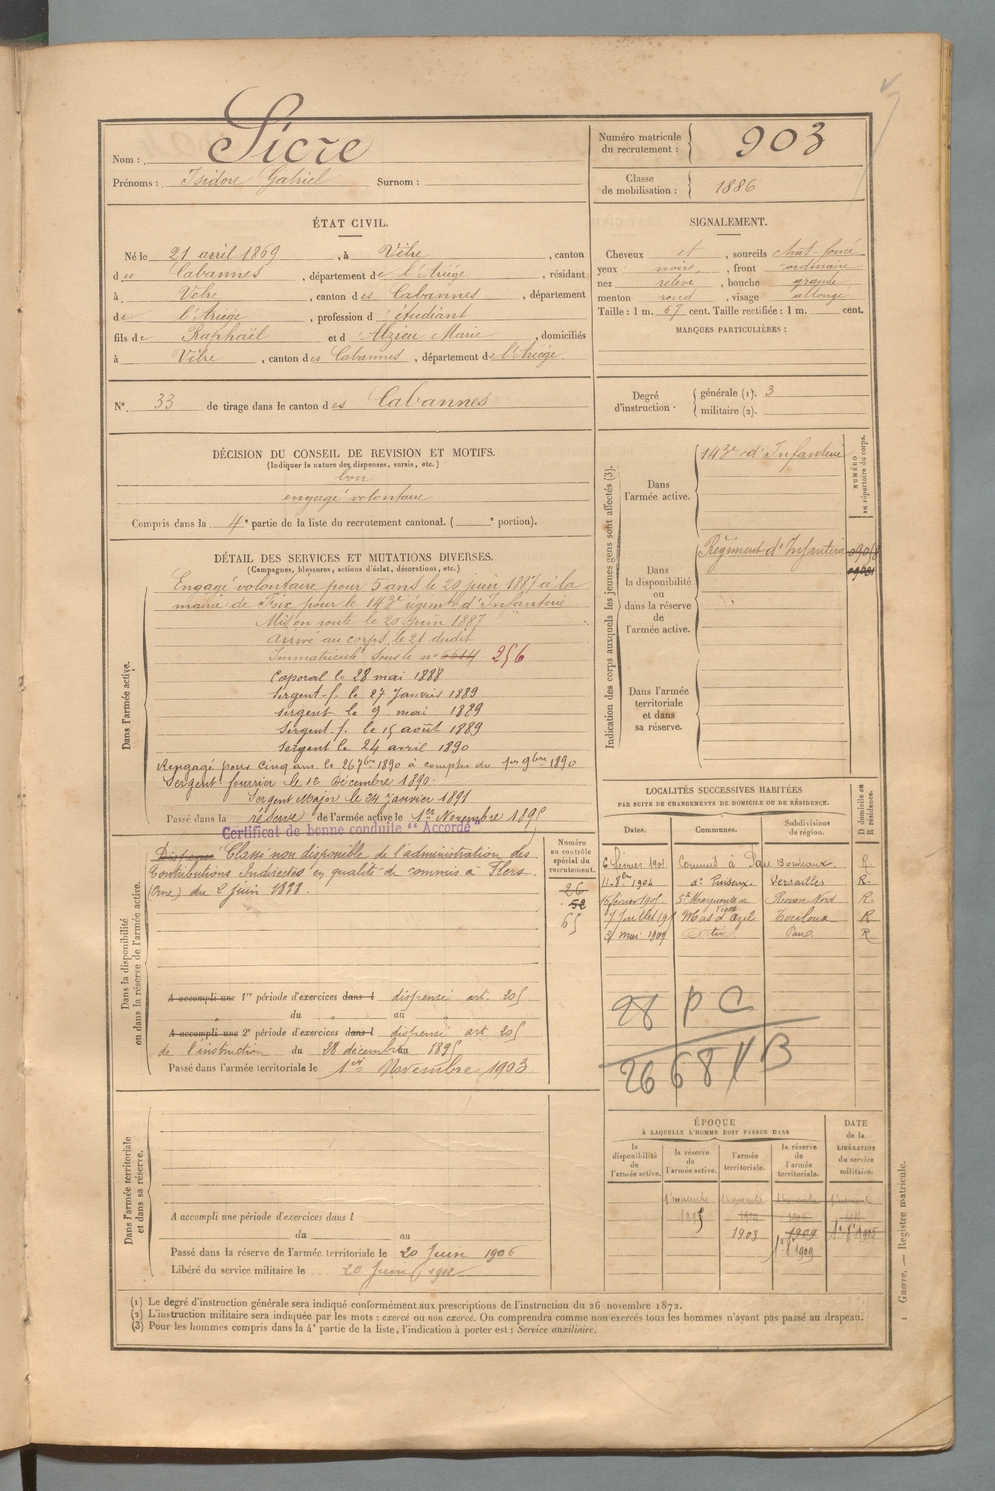 Nom : Sicre
Prénoms : Isidore Gabriel Surnom :
Numéro matricule du recrutement : 903
Classe de mobilisation : 1886
ÉTAT CIVIL.
Né le 21 avril 1869, à Vèbre, canton
des Cabannes, département de l'Ariège, résidant
à Vèbre, canton des Cabannes, département
de l'Ariège, profession d'étudiant
fils de Raphaël et d'Alzieu Marie, domiciliés
à Vèbre, canton des Cabannes, département de l'Ariège
SIGNALEMENT.
Cheveux et, sourcils chat. foncé
yeux noirs, front ordinaire
nez relevé, bouche grande
menton rond, visage allongé
Taille : 1 m. 67 cent. Taille rectifiée : 1 m. cent.
MARQUES PARTICULIÈRES :
N° 33 de tirage dans le canton des Cabannes
Degré d'instruction : générale (1). 3
militaire (2).
DÉCISION DU CONSEIL DE REVISION ET MOTIFS.
(Indiquer la nature des dispenses, sursis, etc.)
bon
engagé volontaire
Compris dans la 4e partie de la liste du recrutement cantonal. ( e portion).
DÉTAIL DES SERVICES ET MUTATIONS DIVERSES.
(Campagnes, blessures, actions d'éclat, décorations, etc.)
Dans l'armée active.
Engagé volontaire pour 5 ans le 20 juin 1887 à la
mairie de Foix pour le 143e régimt d'Infanterie
Mis en route le 20 juin 1887
Arrivé au corps le 21 dudit
Immatriculé sous le n° 256
Caporal le 28 mai 1888
Sergent-f. le 27 Janvier 1889
Sergent le 9 mai 1889
Sergent-f. le 15 août 1889
Sergent le 24 avril 1890
Rengagé pour cinq ans le 26 7bre 1890 à compter du 1er 9bre 1890
Sergent fourrier le 12 Décembre 1890.
Sergent Major le 24 Janvier 1891
Passé dans la réserve de l'armée active le 1er Novembre 1895
Certificat de bonne conduite "Accordé"
Dans la disponibilité ou dans la réserve de l'armée active.
Dispensé Classé non disponible de l'administration des
Contributions Indirectes en qualité de commis à Flers
(Orne) du 2 Juin 1898.
Numéro au contrôle spécial du recrutement.
26
52
65
A accompli une 1re période d'exercices dans l dispensé art. 205
du au
A accompli une 2e période d'exercices dans l dispensé art 205
de l'instruction du 28 décembre au 1895
Passé dans l'armée territoriale le 1er Novembre 1903
Dans l'armée territoriale et dans sa réserve.
A accompli une période d'exercices dans l
du au
Passé dans la réserve de l'armée territoriale le 20 Juin 1906
Libéré du service militaire le 20 Juin
Indication des corps auxquels les jeunes gens sont affectés (3).
NUMÉRO au répertoire du corps.
Dans l'armée active.
143e d'Infanterie
Dans la disponibilité ou dans la réserve de l'armée active.
Régiment d'Infanterie
Dans l'armée territoriale et dans sa réserve.
LOCALITÉS SUCCESSIVES HABITÉES
PAR SUITE DE CHANGEMENTS DE DOMICILE OU DE RÉSIDENCE.
Dates. Communes. Subdivisions de région. D domicile ou R résidence.
février 1901 Commis à Pau Bordeaux R.
1904 d° Puiseux Versailles R.
février 1905 Ste Marguerite Rouen-Nord R.
7 Juillet Mas d'Azil Toulouse R
31 mai 1909 Pau R
28 P C
ÉPOQUE
À LAQUELLE L'HOMME DOIT PASSER DANS
DATE de la LIBÉRATION du service militaire.
la disponibilité de l'armée active. la réserve de l'armée active. l'armée territoriale. la réserve de l'armée territoriale.
1895
1903 1909
1909
(1) Le degré d'instruction générale sera indiqué conformément aux prescriptions de l'instruction du 26 novembre 1872.
(2) L'instruction militaire sera indiquée par les mots : exercé ou non exercé. On comprendra comme non exercés tous les hommes n'ayant pas passé au drapeau.
(3) Pour les hommes compris dans la 4e partie de la liste, l'indication à porter est : Service auxiliaire.
Guerre. — Registre matricule.